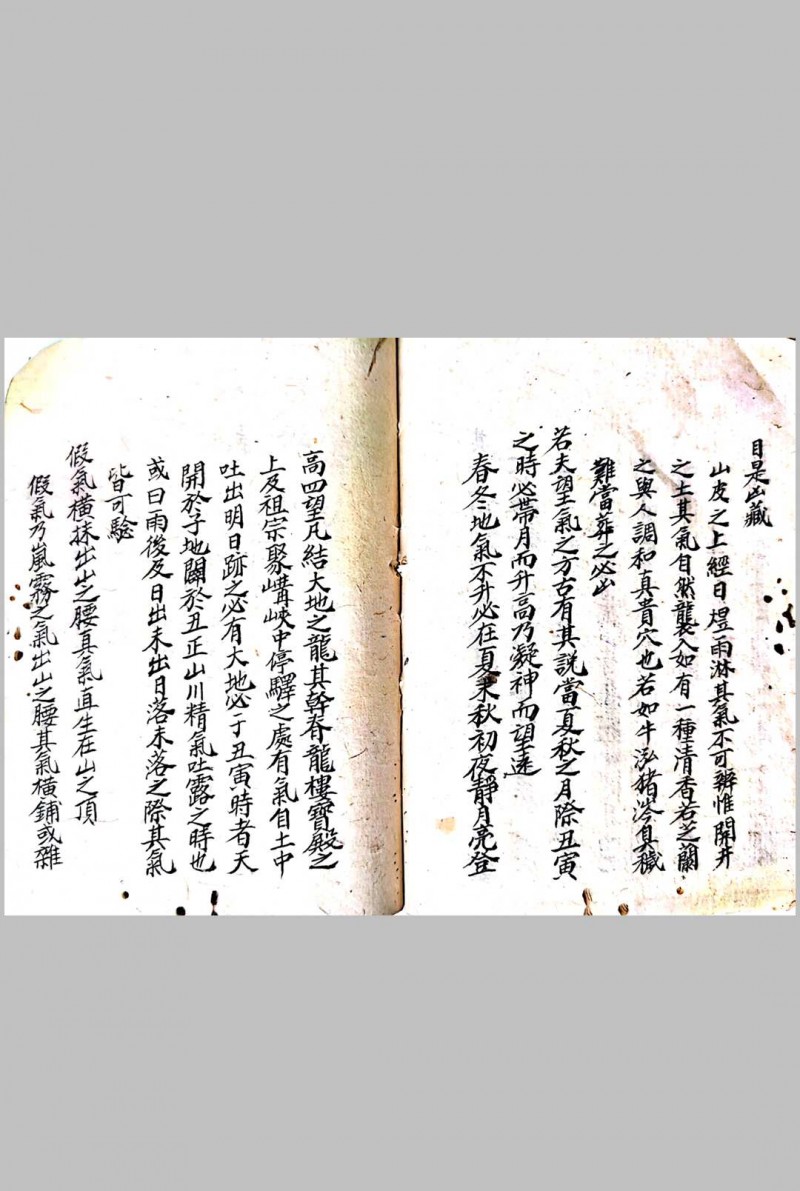 目是凶藏
山皮之上經日煜雨淋其氣不可辨惟開井
之土其氣自然襲人如有一種清香若芝蘭
之與人調和真貴穴也若如牛泓猪涔臭穢
難當葬之必凶
若夫望氣之方古有其說當夏秋之月除丑寅
之時必帶月而升高乃凝神而望遠
春冬地氣不升必在夏末秋初夜靜月亮登
高四望凡結大地之龍其幹脊龍樓寶殿之
上及祖宗聚講峽中停驛之處有氣自土中
吐出明日跡之必有大地必于丑寅時者天
開於子地闢於丑正山川精氣吐露之時也
或曰雨後及日出未出日落未落之際其氣
皆可驗
假氣橫抹出山之腰真氣直生在山之頂
假氣乃嵐霧之氣出山之腰其氣橫鋪或雜